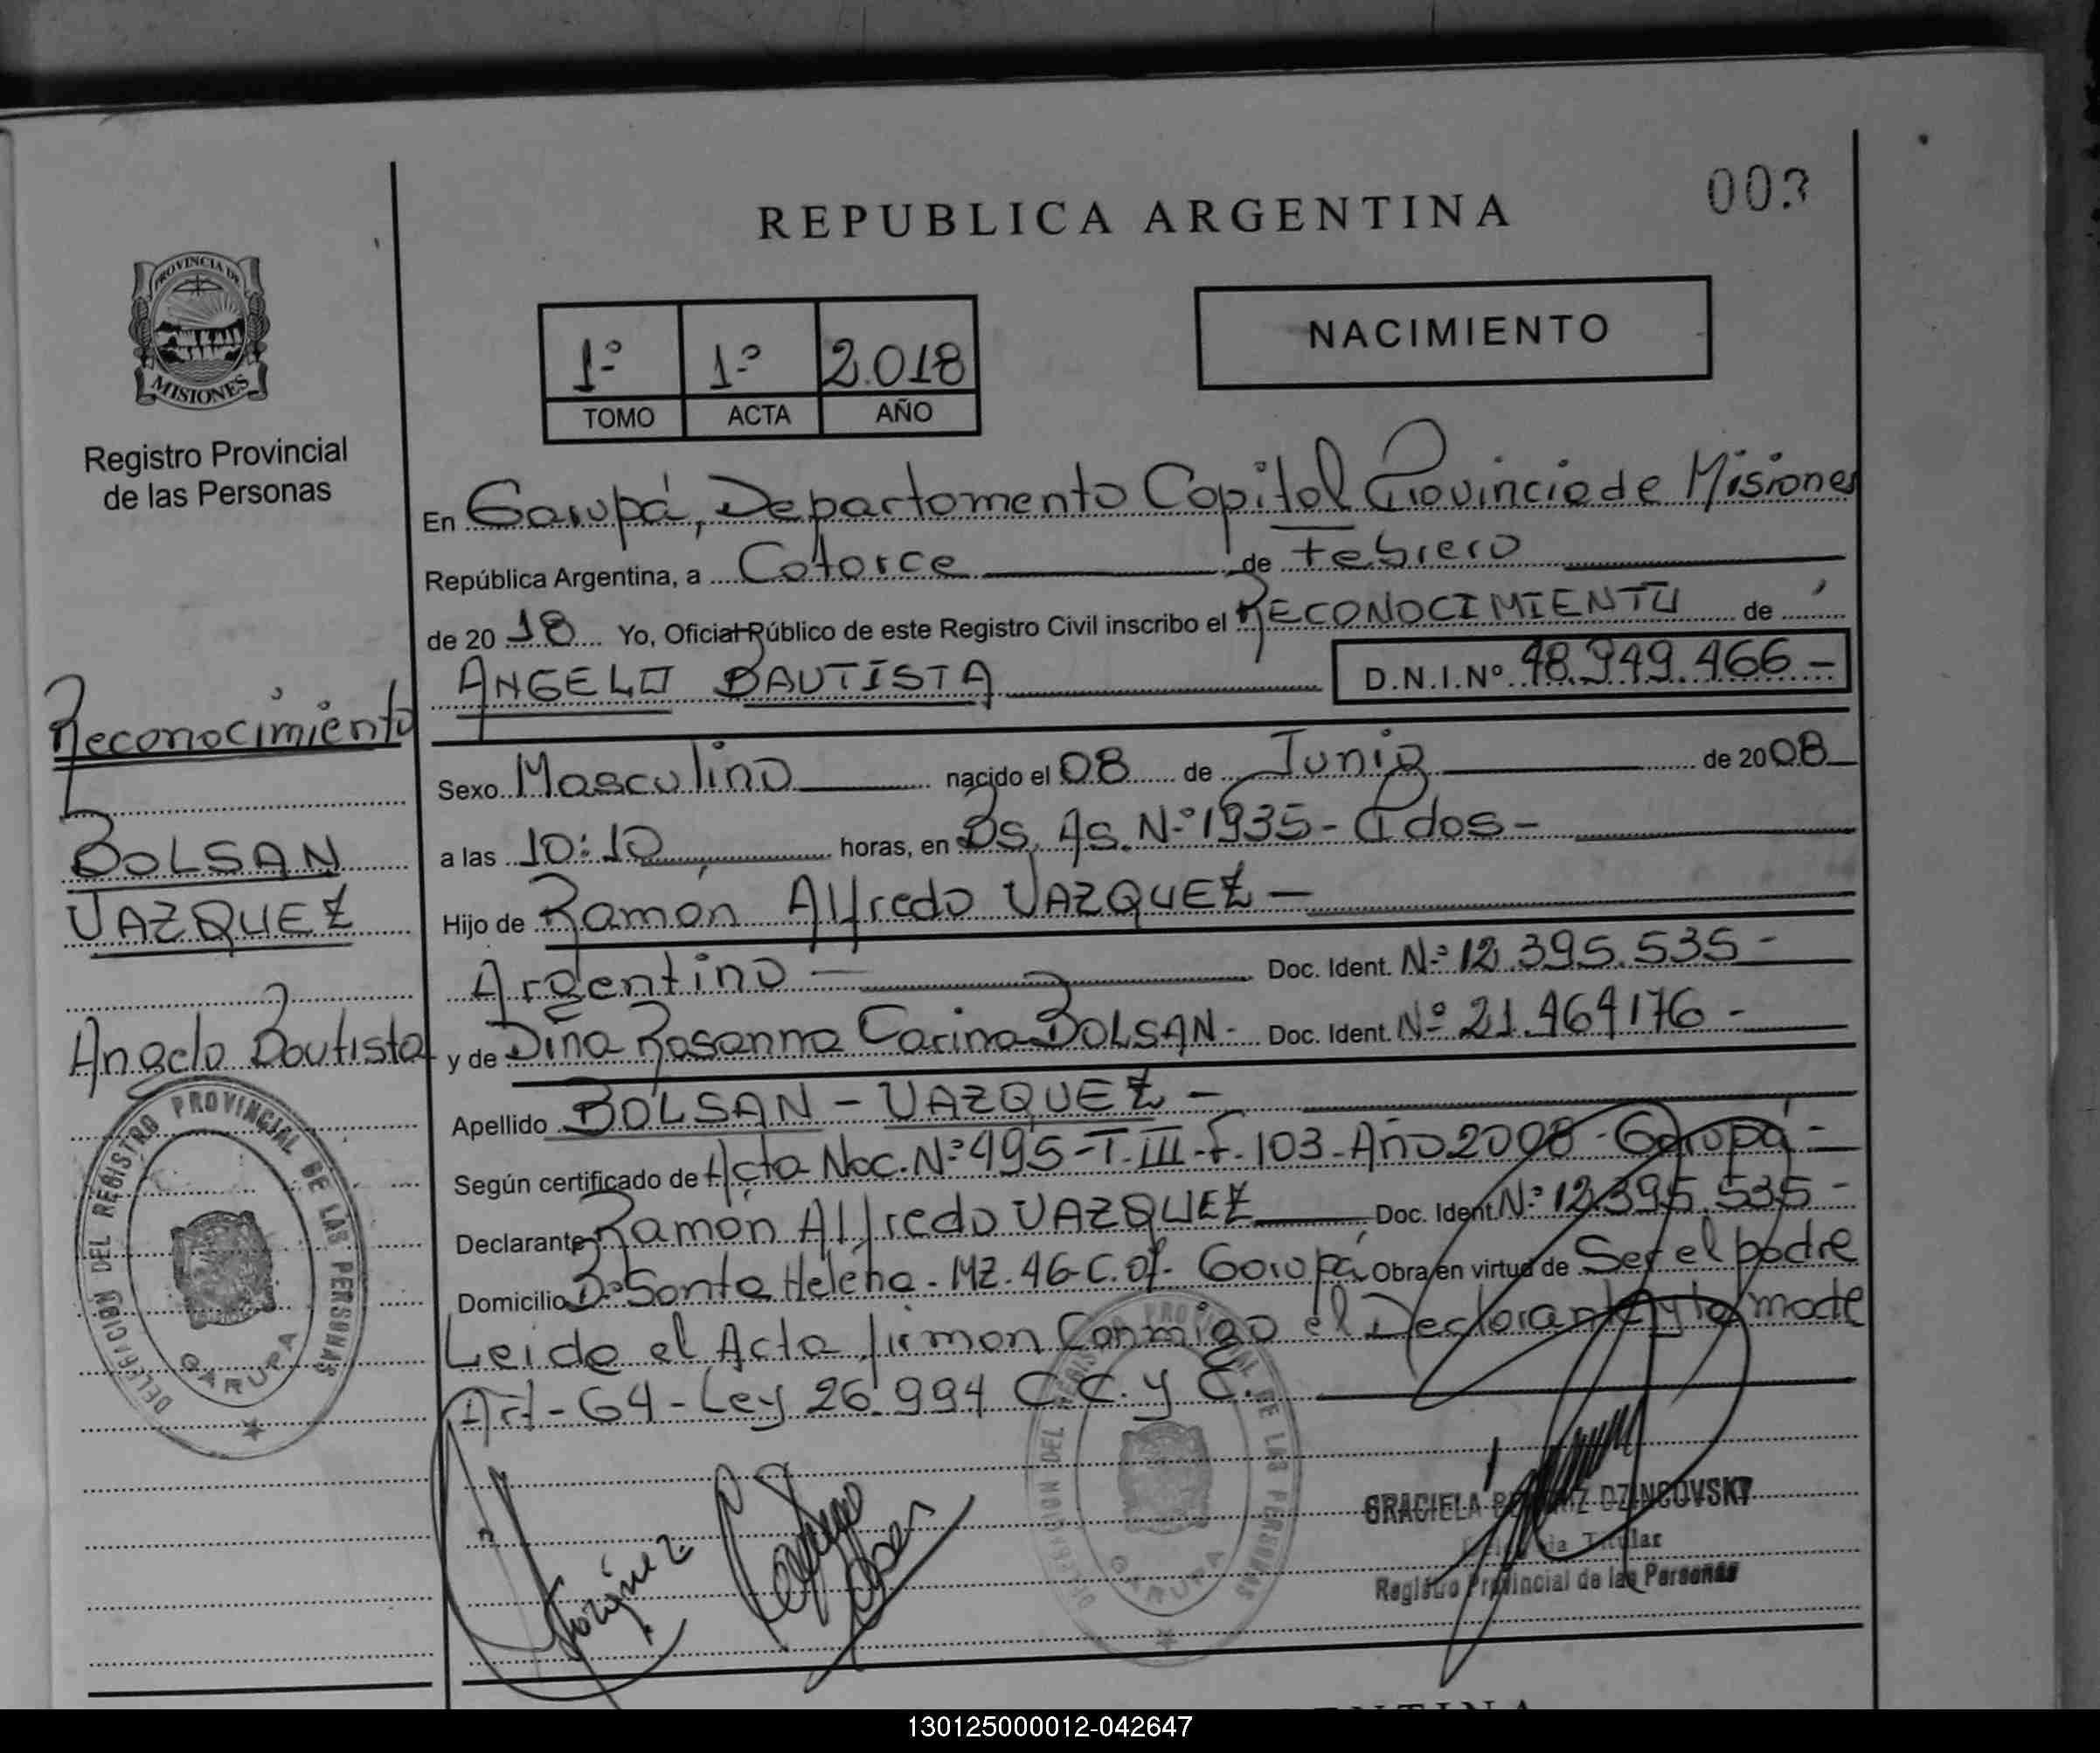 003
REPUBLICA ARGENTINA
PROVINCIA DE
MISIONES
Registro Provincial
de las Personas
1º 1º 2.018
TOMO ACTA AÑO
NACIMIENTO
En Garupá, Departamento Capital Provincia de Misiones
República Argentina, a Catorce de Febrero
de 20 18 Yo, Oficial Público de este Registro Civil inscribo el RECONOCIMIENTO de
ANGELO BAUTISTA D.N.I.Nº 48.949.466-
Reconocimiento
BOLSAN
VAZQUEZ
Angelo Bautista
Sexo Masculino nacido el 08 de Junio de 20 08
a las 10:10 horas, en Bs. As. Nº 1935 - Pdas -
Hijo de Ramón Alfredo VAZQUEZ -
Argentino - Doc. Ident. Nº 12.395.535 -
y de Dina Rosanna Carina BOLSAN - Doc. Ident. Nº 21.464176 -
Apellido BOLSAN - VAZQUEZ -
Según certificado de Acta Nac. Nº 495-T. III-F. 103-Año 2008 - Garupá -
Declarante Ramón Alfredo VAZQUEZ Doc. Ident. Nº 12.395.535 -
Domicilio Bº Santa Helena - MZ. 46- Garupá Obra en virtud de Ser el padre
Leida el Acta firman Conmigo el Declarante y la madre
Art - 64 - Ley 26.994 C.C. y C.
DELEGACION DEL REGISTRO PROVINCIAL DE LAS PERSONAS
GARUPA
DELEGACION DEL REGISTRO PROVINCIAL DE LAS PERSONAS
GARUPA
Vazquez
GRACIELA DZINCOVSKY
Titular
Registro Provincial de las Personas
130125000012-042647